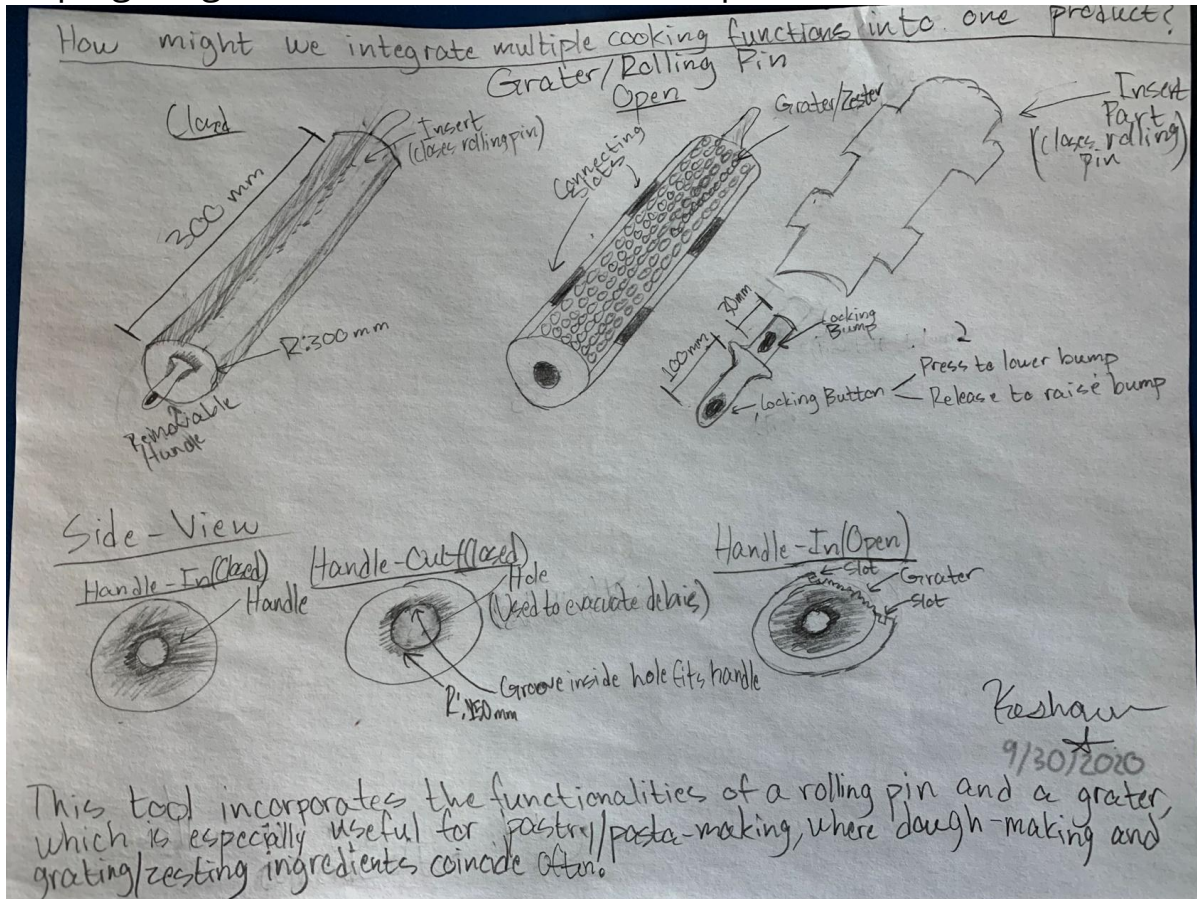 How might we integrate multiple cooking functions into one product?
Grater/Rolling Pin
Closed
Insert
(closes rolling pin)
300 mm
R:300 mm
Removable
Handle
Open
Connecting
Slots
Grater/Zester
Insert
Part
(closes rolling
pin)
30mm
100mm
Locking
Bump
Locking Button
Press to lower bump
Release to raise bump
Side-View
Handle-In(Closed)
Handle
Handle-Out(Closed)
Hole
(Used to evacuate debries)
Groove inside hole fits handle
R:.150mm
Handle-In(Open)
Slot
Grater
Slot
Keshaw
9/30/2020
This tool incorporates the functionalities of a rolling pin and a grater,
which is especially useful for pastry/pasta-making, where dough-making and
grating/zesting ingredients coincide often.